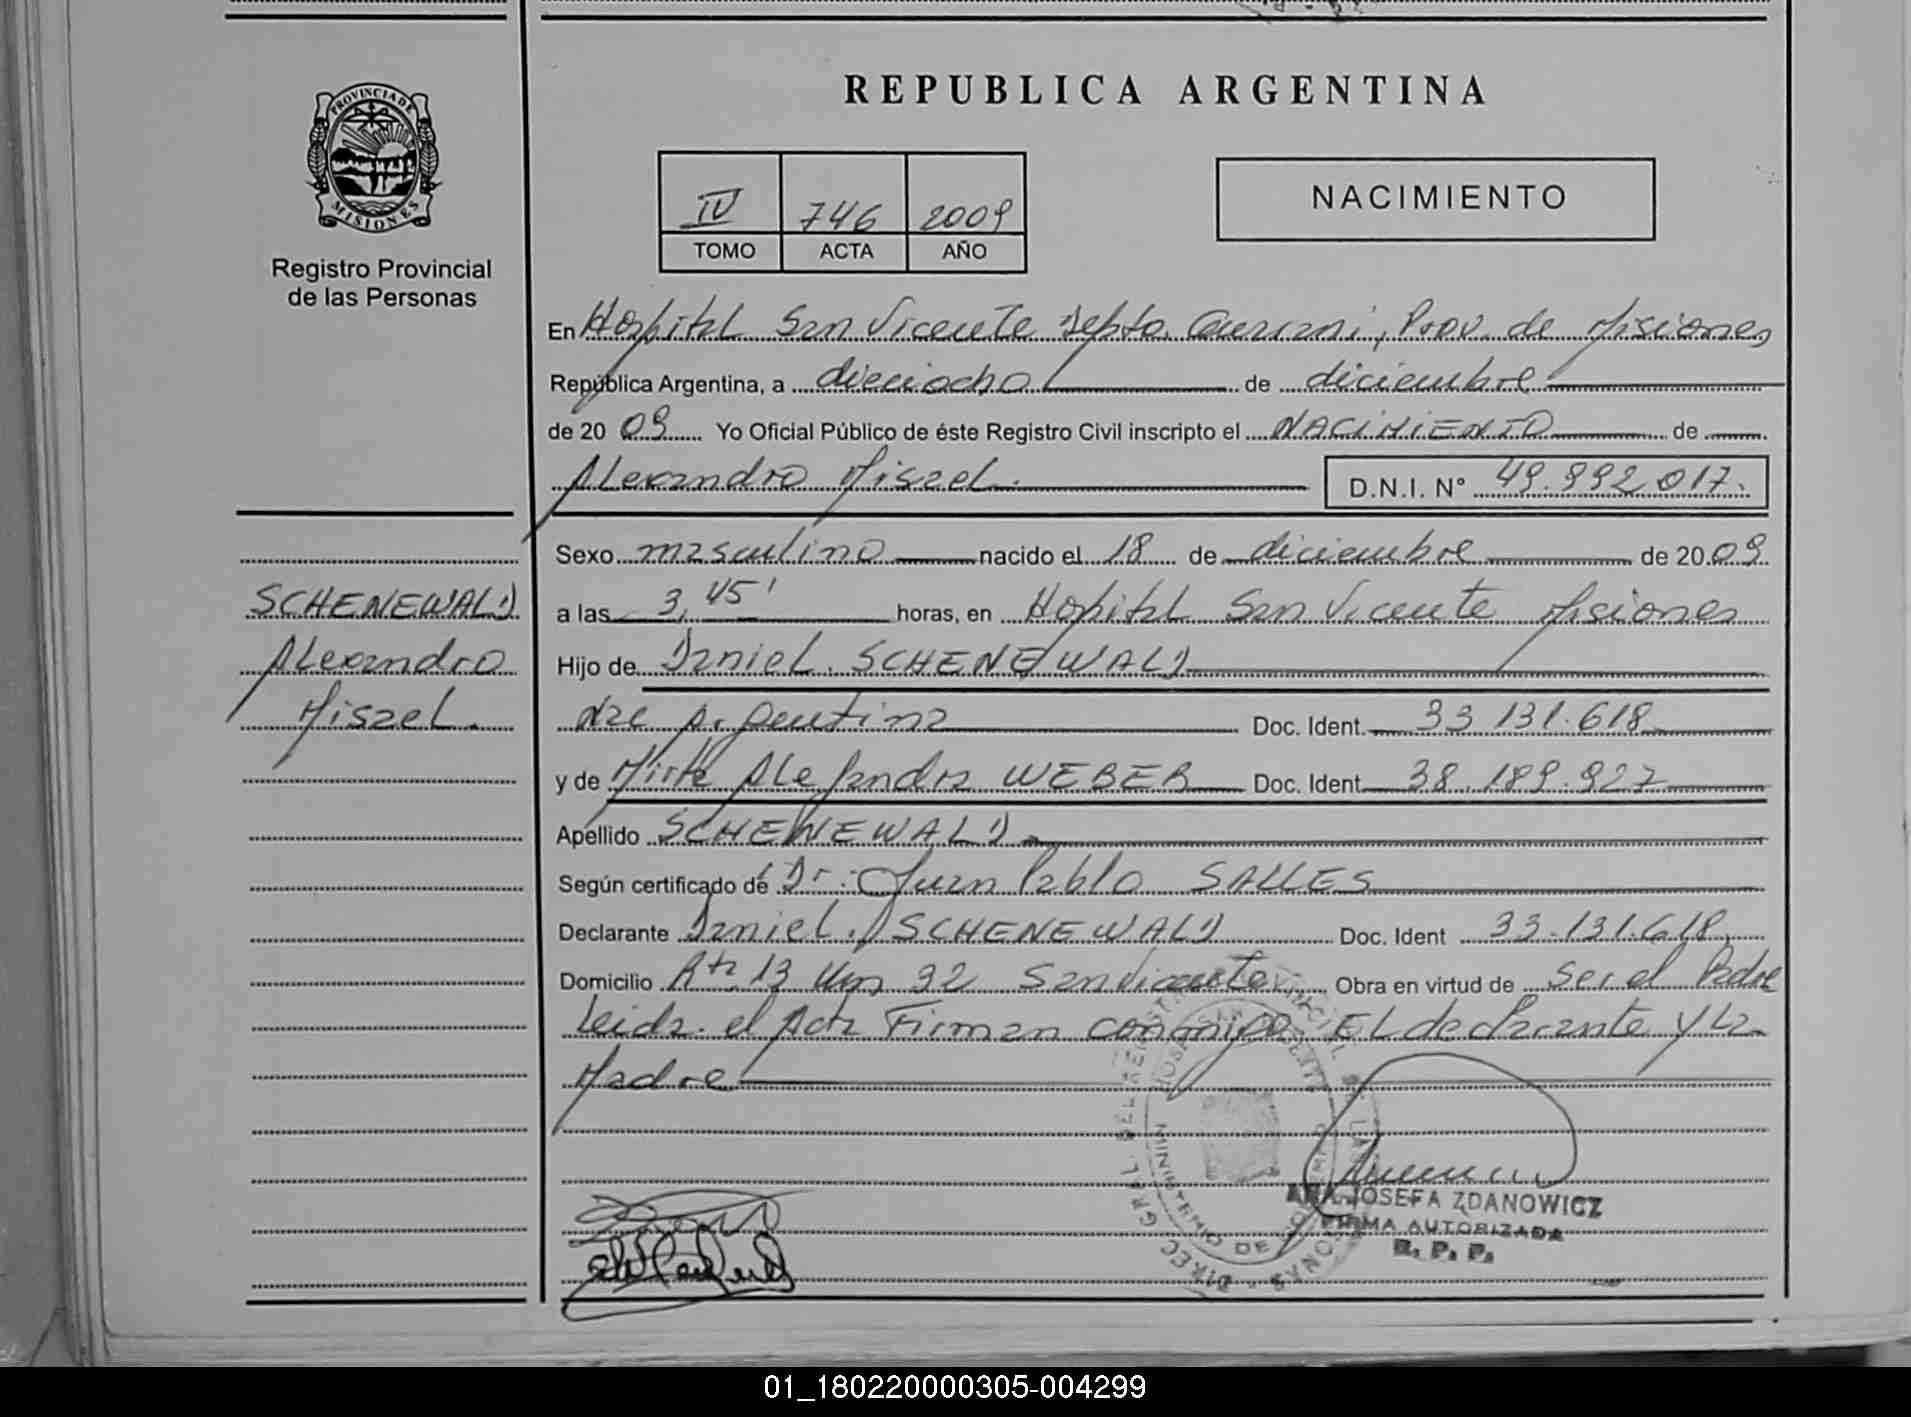 REPUBLICA ARGENTINA
PROVINCIA DE
MISIONES
Registro Provincial
de las Personas
IV 746 2009
TOMO ACTA AÑO
NACIMIENTO
En Hospital San Vicente Depto. Guarani, Prov. de Misiones
República Argentina, a dieciocho de diciembre
de 20 09 Yo Oficial Público de éste Registro Civil inscripto el NACIMIENTO de
Alexandro Misael. D.N.I. N° 49.992017.
Sexo masculino nacido el 18 de diciembre de 20 09
SCHENEWALD
Alexandro
Misael.
a las 3,45' horas, en Hospital San Vicente Misiones
Hijo de Daniel SCHENEWALD
Nac Argentina Doc. Ident. 33 131.618
y de Mirta Alejandra WEBER Doc. Ident. 38.189.927
Apellido SCHENEWALD
Según certificado de Dr. Juan Pablo SALLES
Declarante Daniel. SCHENEWALD Doc. Ident 33.131.618
Domicilio Rta 13 Km 32 San Vicente Obra en virtud de Ser el Padre
Leida el Acta Firman conmigo EL declarante y La
Madre
DIREC GRAL DEL REGISTRO PROVINCIAL DE LAS PERSONAS
HOSPITAL SAN VICENTE
MINISTERIO DE GOBIERNO
ANA JOSEFA ZDANOWICZ
FIRMA AUTORIZADA
R. P. P.
01_180220000305-004299